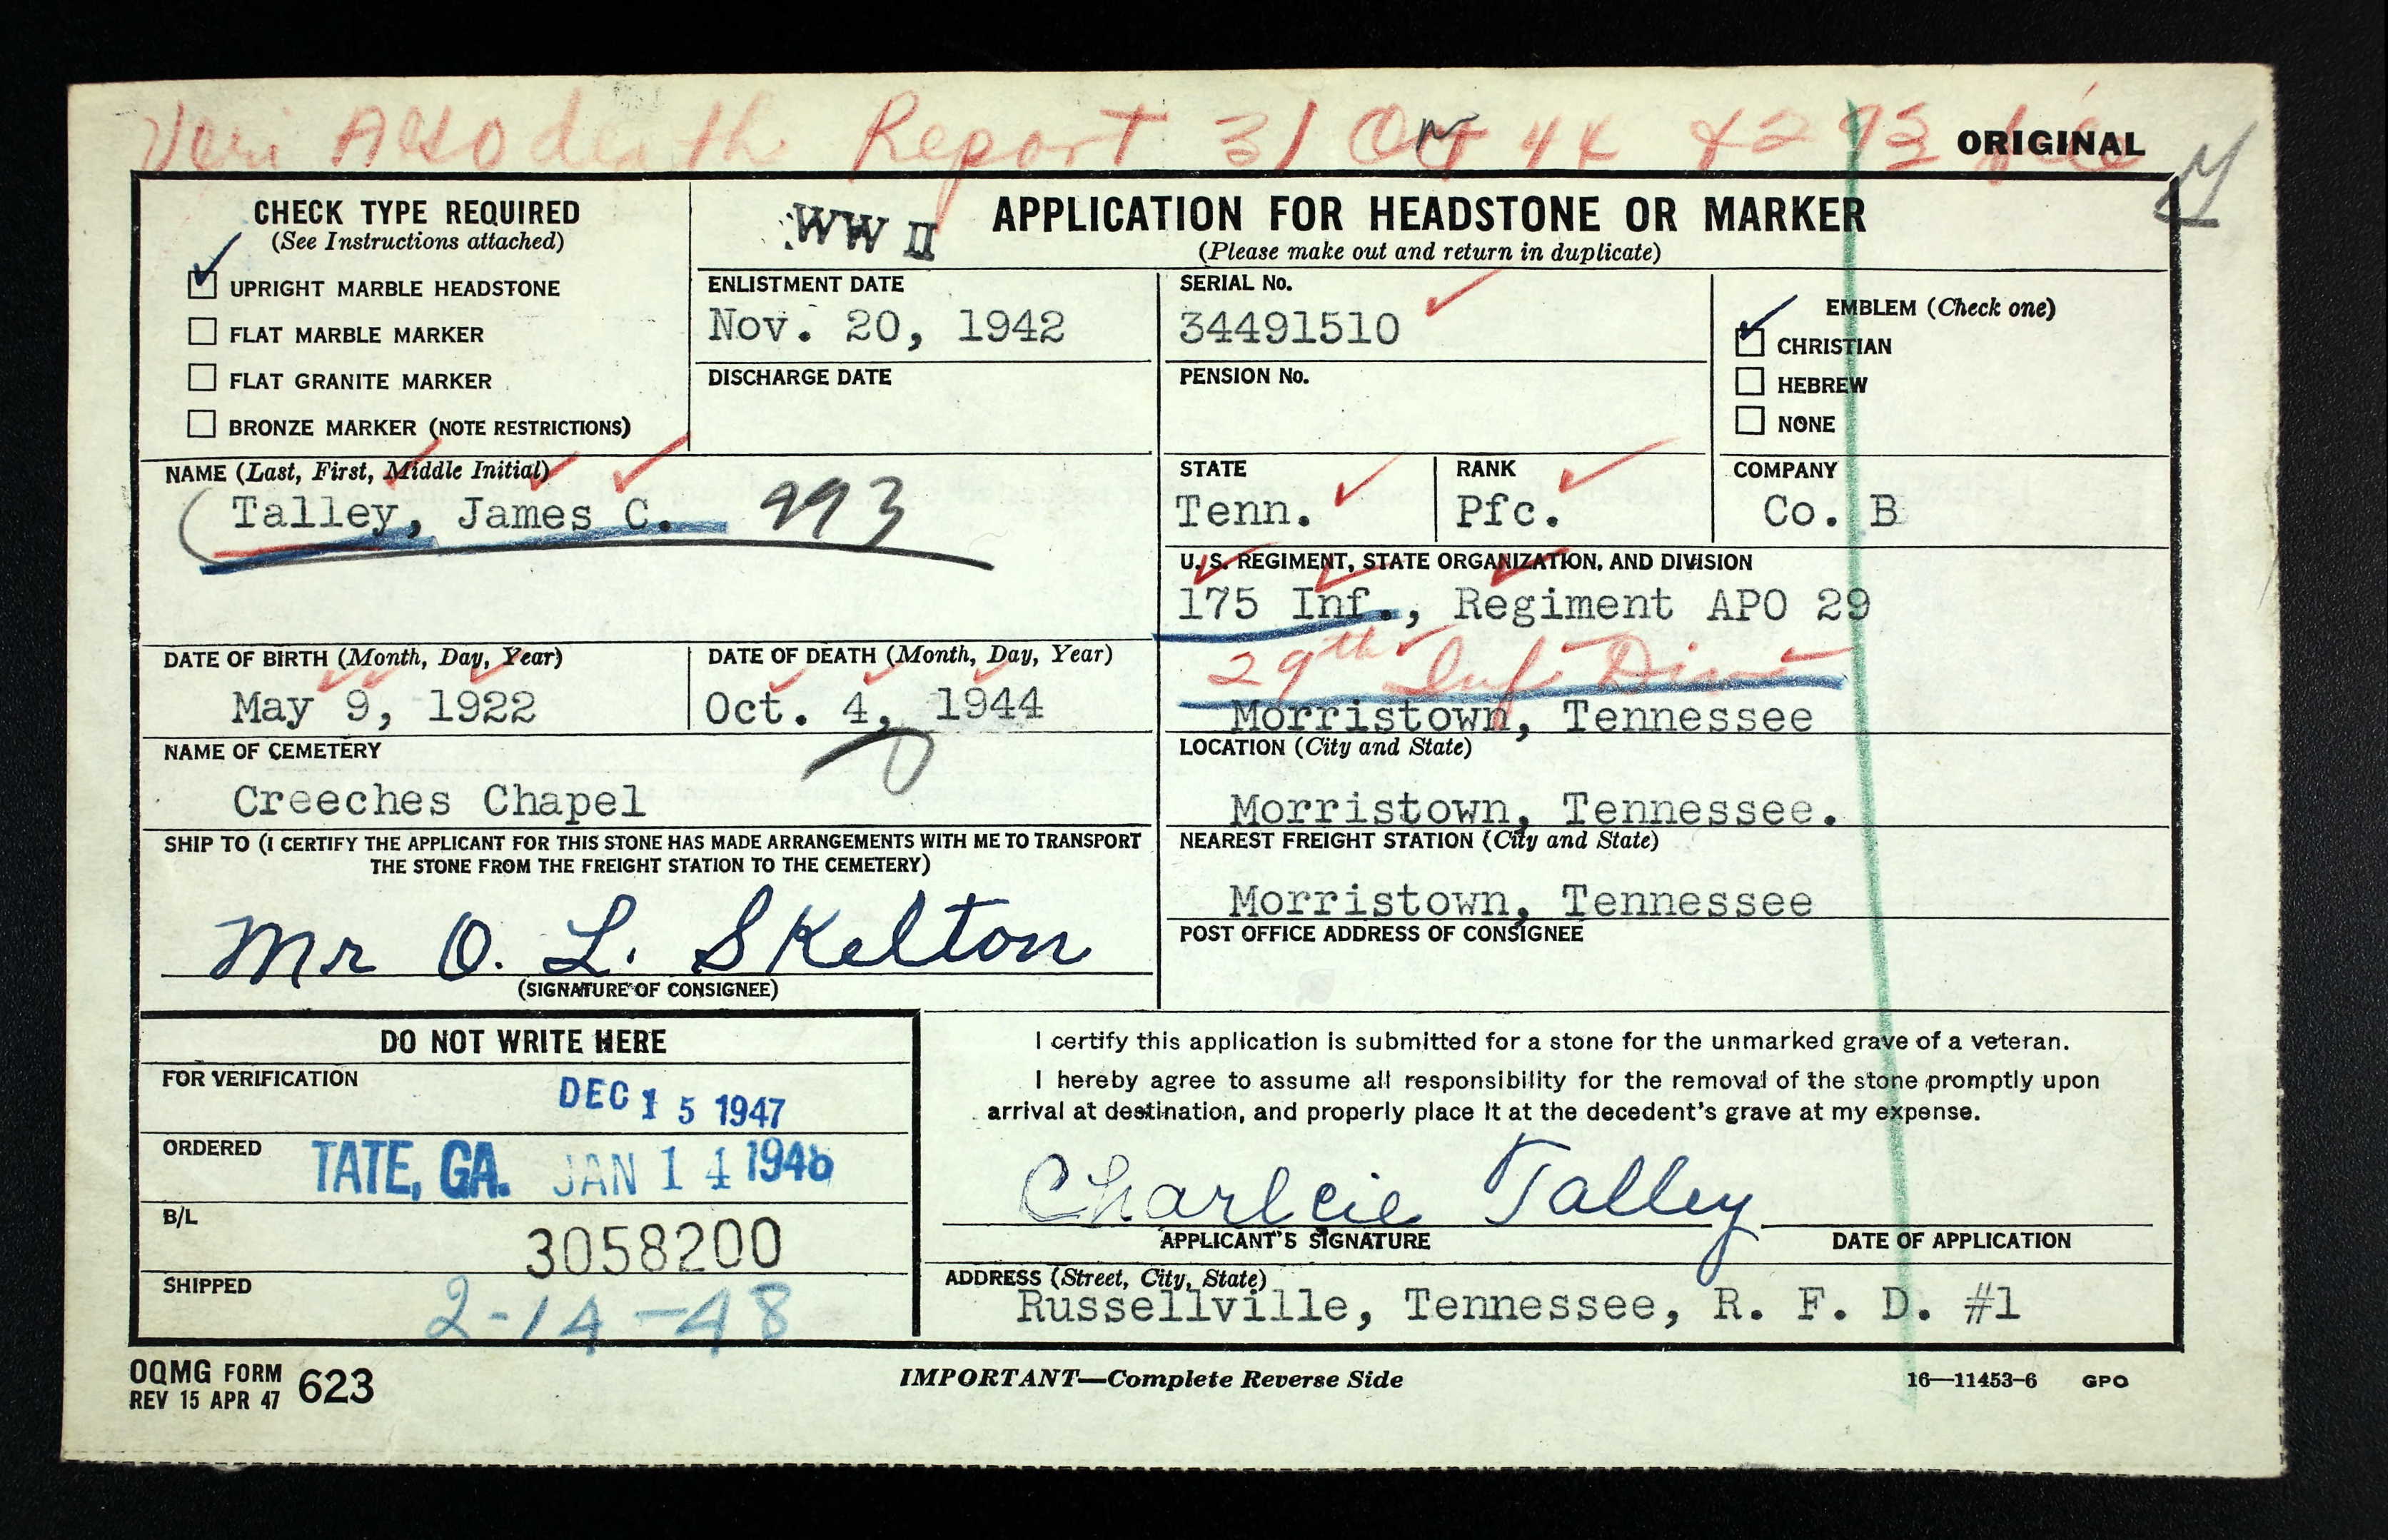 Veri Also death Report 31 Oct 44 293 file
ORIGINAL
CHECK TYPE REQUIRED
(See Instructions attached)
UPRIGHT MARBLE HEADSTONE
FLAT MARBLE MARKER
FLAT GRANITE MARKER
BRONZE MARKER (NOTE RESTRICTIONS)
WW II
APPLICATION FOR HEADSTONE OR MARKER
(Please make out and return in duplicate)
ENLISTMENT DATE
Nov. 20, 1942
DISCHARGE DATE
SERIAL No.
34491510
PENSION No.
EMBLEM (Check one)
CHRISTIAN
HEBREW
NONE
NAME (Last, First, Middle Initial)
Talley, James C. 993
STATE
Tenn.
RANK
Pfc.
COMPANY
Co. B
U. S. REGIMENT, STATE ORGANIZATION, AND DIVISION
175 Inf., Regiment APO 29
29th Inf Div
Morristown, Tennessee
DATE OF BIRTH (Month, Day, Year)
May 9, 1922
DATE OF DEATH (Month, Day, Year)
Oct. 4, 1944
NAME OF CEMETERY
Creeches Chapel
LOCATION (City and State)
Morristown, Tennessee.
SHIP TO (I CERTIFY THE APPLICANT FOR THIS STONE HAS MADE ARRANGEMENTS WITH ME TO TRANSPORT
THE STONE FROM THE FREIGHT STATION TO THE CEMETERY)
Mr O. L. Skelton
(SIGNATURE OF CONSIGNEE)
NEAREST FREIGHT STATION (City and State)
Morristown, Tennessee
POST OFFICE ADDRESS OF CONSIGNEE
DO NOT WRITE HERE
FOR VERIFICATION
DEC 15 1947
ORDERED
TATE, GA. JAN 14 1948
B/L
3058200
SHIPPED
2-14-48
I certify this application is submitted for a stone for the unmarked grave of a veteran.
I hereby agree to assume all responsibility for the removal of the stone promptly upon
arrival at destination, and properly place it at the decedent's grave at my expense.
Charlcie Talley
APPLICANT'S SIGNATURE
DATE OF APPLICATION
ADDRESS (Street, City, State)
Russellville, Tennessee, R. F. D. #1
OQMG FORM 623
REV 15 APR 47
IMPORTANT—Complete Reverse Side
16—11453-6 GPO